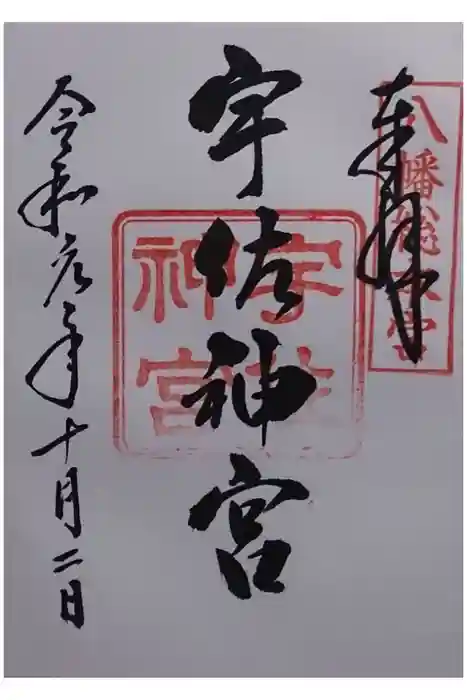 奉拝
八幡総本宮
宇佐神宮
宇佐神宮
令和元年十月二日